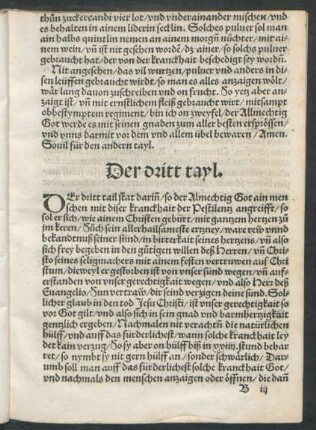 thůn zuckercandi vier lot / vnd vnderainander mischen / vnd
es behalten in ainem liderin secklin. Solches puluer sol man
ain halbs quintlin nemen an ainem morgē nüchter / mit ai-
nem wein / vn̄ ist nit gesehen wordē / dz ainer / so solchs puluer
gebraucht hat / der von der kranckhait beschedigt sey wordē.
Nit angesehen / das vil wurtzen / puluer vnd anders in di-
sen leuffen gebraucht wirdt / so man es alles anzaigen wölt /
wär lang dauon zuschreiben vnd on frucht. So yetz aber an-
zaigt ist / vn̄ mit ernstlichem fleiß gebraucht wirt / mitsampt
obbestymptem regiment / bin ich on zweyfel / der Allmechtig
Got werde es mit seinen gnaden zum aller besten ersprössen /
vnd vnns darmit vor dem vnd allem übel bewaren / Amen.
Souil für den andern tayl.
Der dritt tayl.
DEr dritt tail stat darin̄ / so der Almechtig Got ain men
schen mit diser kranckhait der Pestilentz angreifft / so
sol er sich / wie ainem Christen gebürt / mit gantzem hertzen zů
im keren / Sůch sein allerhailsameste ertzney / ware rew vnnd
bekandtnuß seiner sünd / in bitterkait seines hertzens / vn̄ also
sich frey begeben in den gütigen willen deß Herren / vn̄ Chri-
sto seines seligmachers mit ainem festen vertrawen auff Chri
stum / die weyl er gestorben ist von vnser sünd wegen / vn̄ auf-
erstanden von vnser gerechtigkait wegen / vnd also Herr deß
Euangelio / Jun vertraw / dir seind verzigen deine sünd. Söl-
licher glaub in den tod Jesu Christi / ist vnser gerechtigkait so
vor Got gilt / vnd also sich in sein gnad vnd barmhertzigkait
gentzlich ergeben / Nachmalen nit verachtn̄ die natürlichen
hülff / vnd auff das fürderlichest / wann solche kranckhait ley
det kain verzug / Jo sy aber on hülff biß in xxiiij. stund behar
ret / so nymbt sy nit gern hülff an / sonder schwärlich / Dar-
umb soll man auff das fürderlichest solche kranckhait Got /
vnd nachmals den menschen anzaigen oder öffnen / die dan̄
B iij